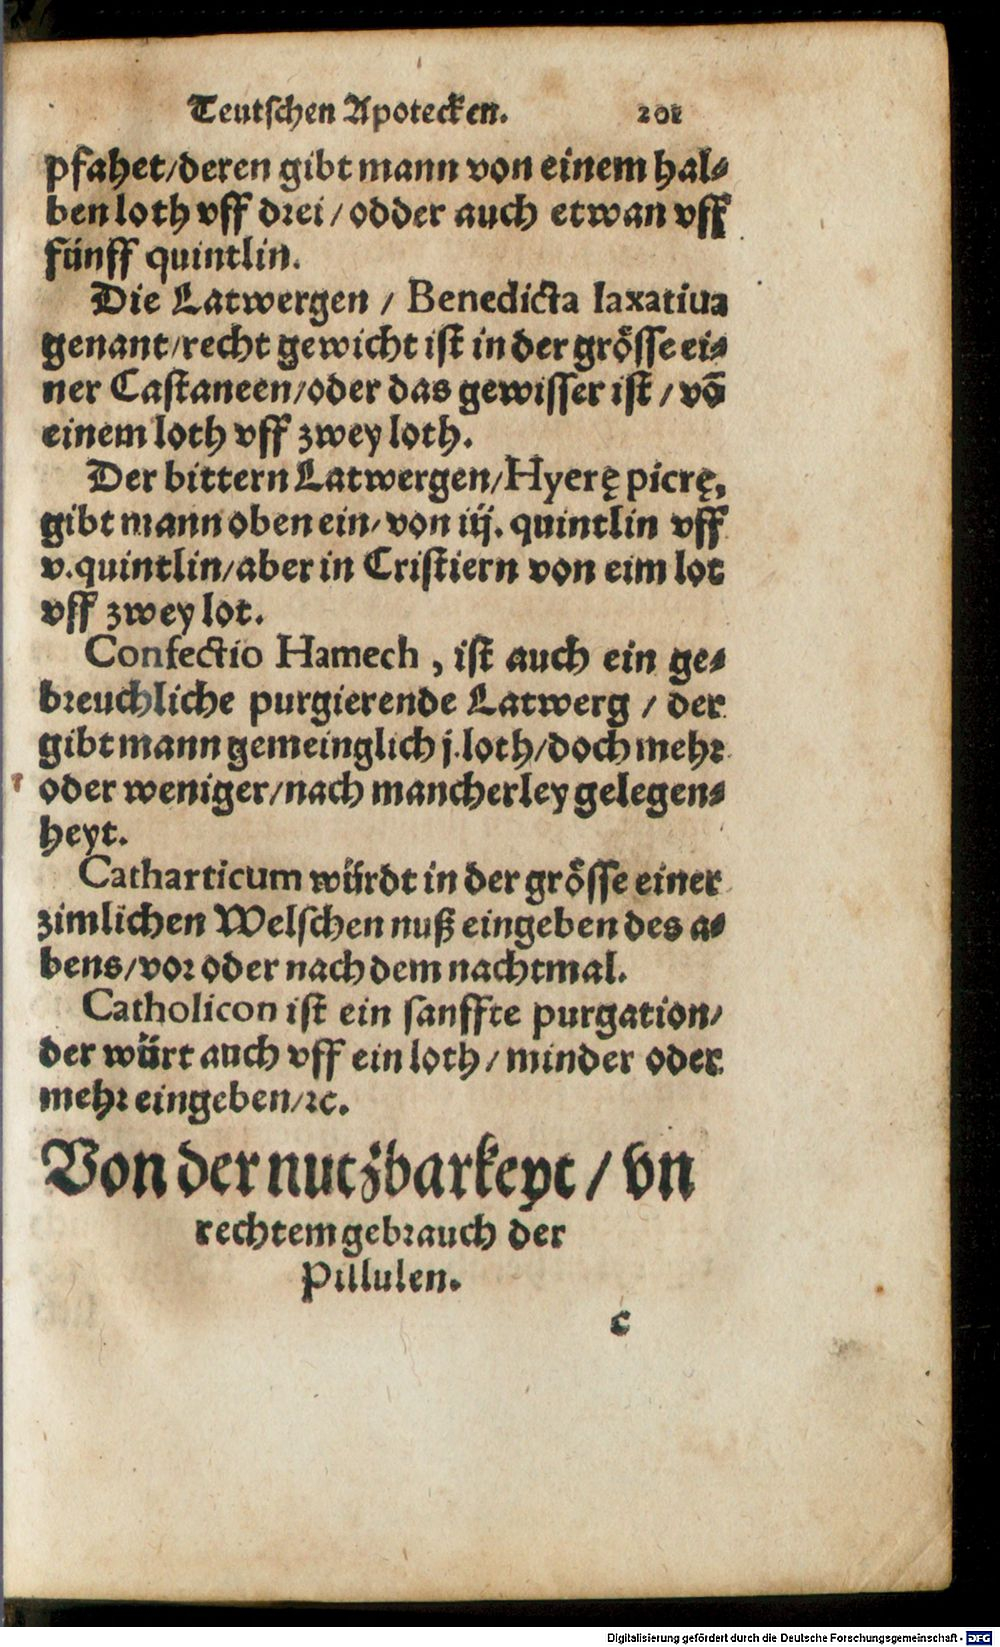 Teutschen Apotecken. 201
pfahet/deren gibt mann von einem hal⸗
ben loth vff drei/ odder auch etwan vff
fünff quintlin.
Die Latwergen / Benedicta laxatiua
genant/recht gewicht ist in der grösse ei⸗
ner Castaneen/oder das gewisser ist / vō
einem loth vff zwey loth.
Der bittern Latwergen/Hyerę picrę,
gibt mann oben ein/ von iij. quintlin vff
v.quintlin/aber in Cristiern von eim lot
vff zwey lot.
Confectio Hamech, ist auch ein ge⸗
breuchliche purgierende Latwerg / der
gibt mann gemeinglich j.loth/doch mehr
oder weniger/nach mancherley gelegen⸗
heyt.
Catharticum würdt in der grösse einer
zimlichen Welschen nuß eingeben des a⸗
bens/vor oder nach dem nachtmal.
Catholicon ist ein sanffte purgation/
der würt auch vff ein loth/ minder oder
mehr eingeben/ꝛc.
Von der nutzbarkeyt / vn
rechtem gebrauch der
Pillulen.
c
Digitalisierung gefördert durch die Deutsche Forschungsgemeinschaft - DFG